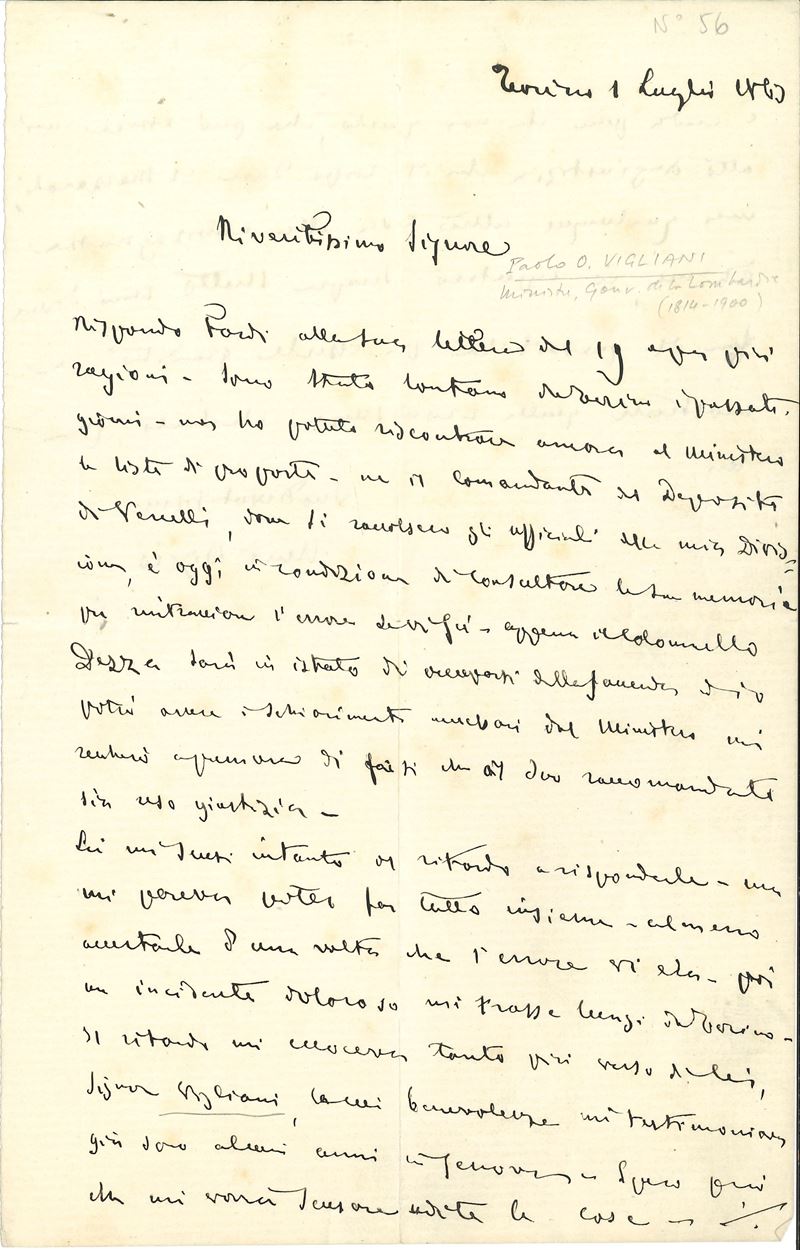 N° 56
Torino 1 Luglio 1863
Riveritissimo Signore
Paolo O. VIGLIANI
Ministro, Gov. della Lombardia
(1814-1900)
Rispondo tardi alla sua lettera del 19 per più
ragioni - sono stato lontano da Torino i passati
giorni - non ho potuto riscontrare ancora al Ministero
le liste di proposte - ne il Comandante del Deposito
di Vercelli, dove si raccolsero gli ufficiali della mia Divis=
ione, è oggi in condizione di consultare la sua memoria
per rintracciare l'errore se vi fu - appena il Colonnello
Dezza sarà in istato di occuparsi della faccenda ed io
potrò avere i schiarimenti necessari dal Ministero mi
renderò a premura di far sì che al suo raccomandato
sia reso giustizia -
Lei mi scusi intanto il ritardo a risponderle - ma
mi pareva poter far tutto insieme - almeno
accertarle d'una volta che l'errore vi era - poi
un incidente doloroso mi trasse lungi da Torino -
Il ritardo mi coceva tanto più verso di lei,
Signor Vigliani, la cui benevolenza mi testimoniava
già sono alcuni anni in Genova - Spero però
che mi vorrà scusare udite le cose -